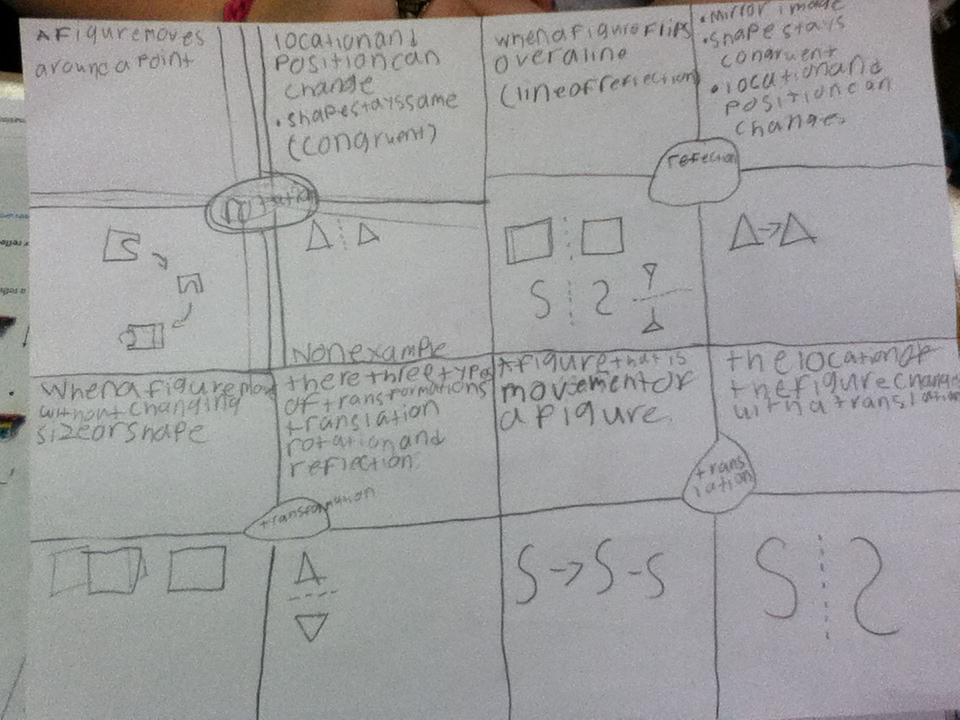 A Figure moves
around a point
location and
Position can
change
• shape stays same
(congruent)
when a figure flips
over a line
(line of reflection)
• Mirror image
• shape stays
congruent
• location and
position can
change.
reflection
S
S
2
Nonexample
When a figure move
without changing
size or shape
there three types
of transformations
translation
rotation and
reflection.
A figure that is
movement of
a figure.
the location of
the figure change
with a translation
transformation
trans
lation
S → S - S
S
2